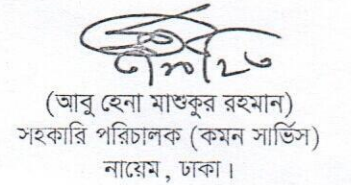 (আবু হেনা মাশুকুর রহমান)
সহকারি পরিচালক (কমন সার্ভিস)
নায়েম, ঢাকা।